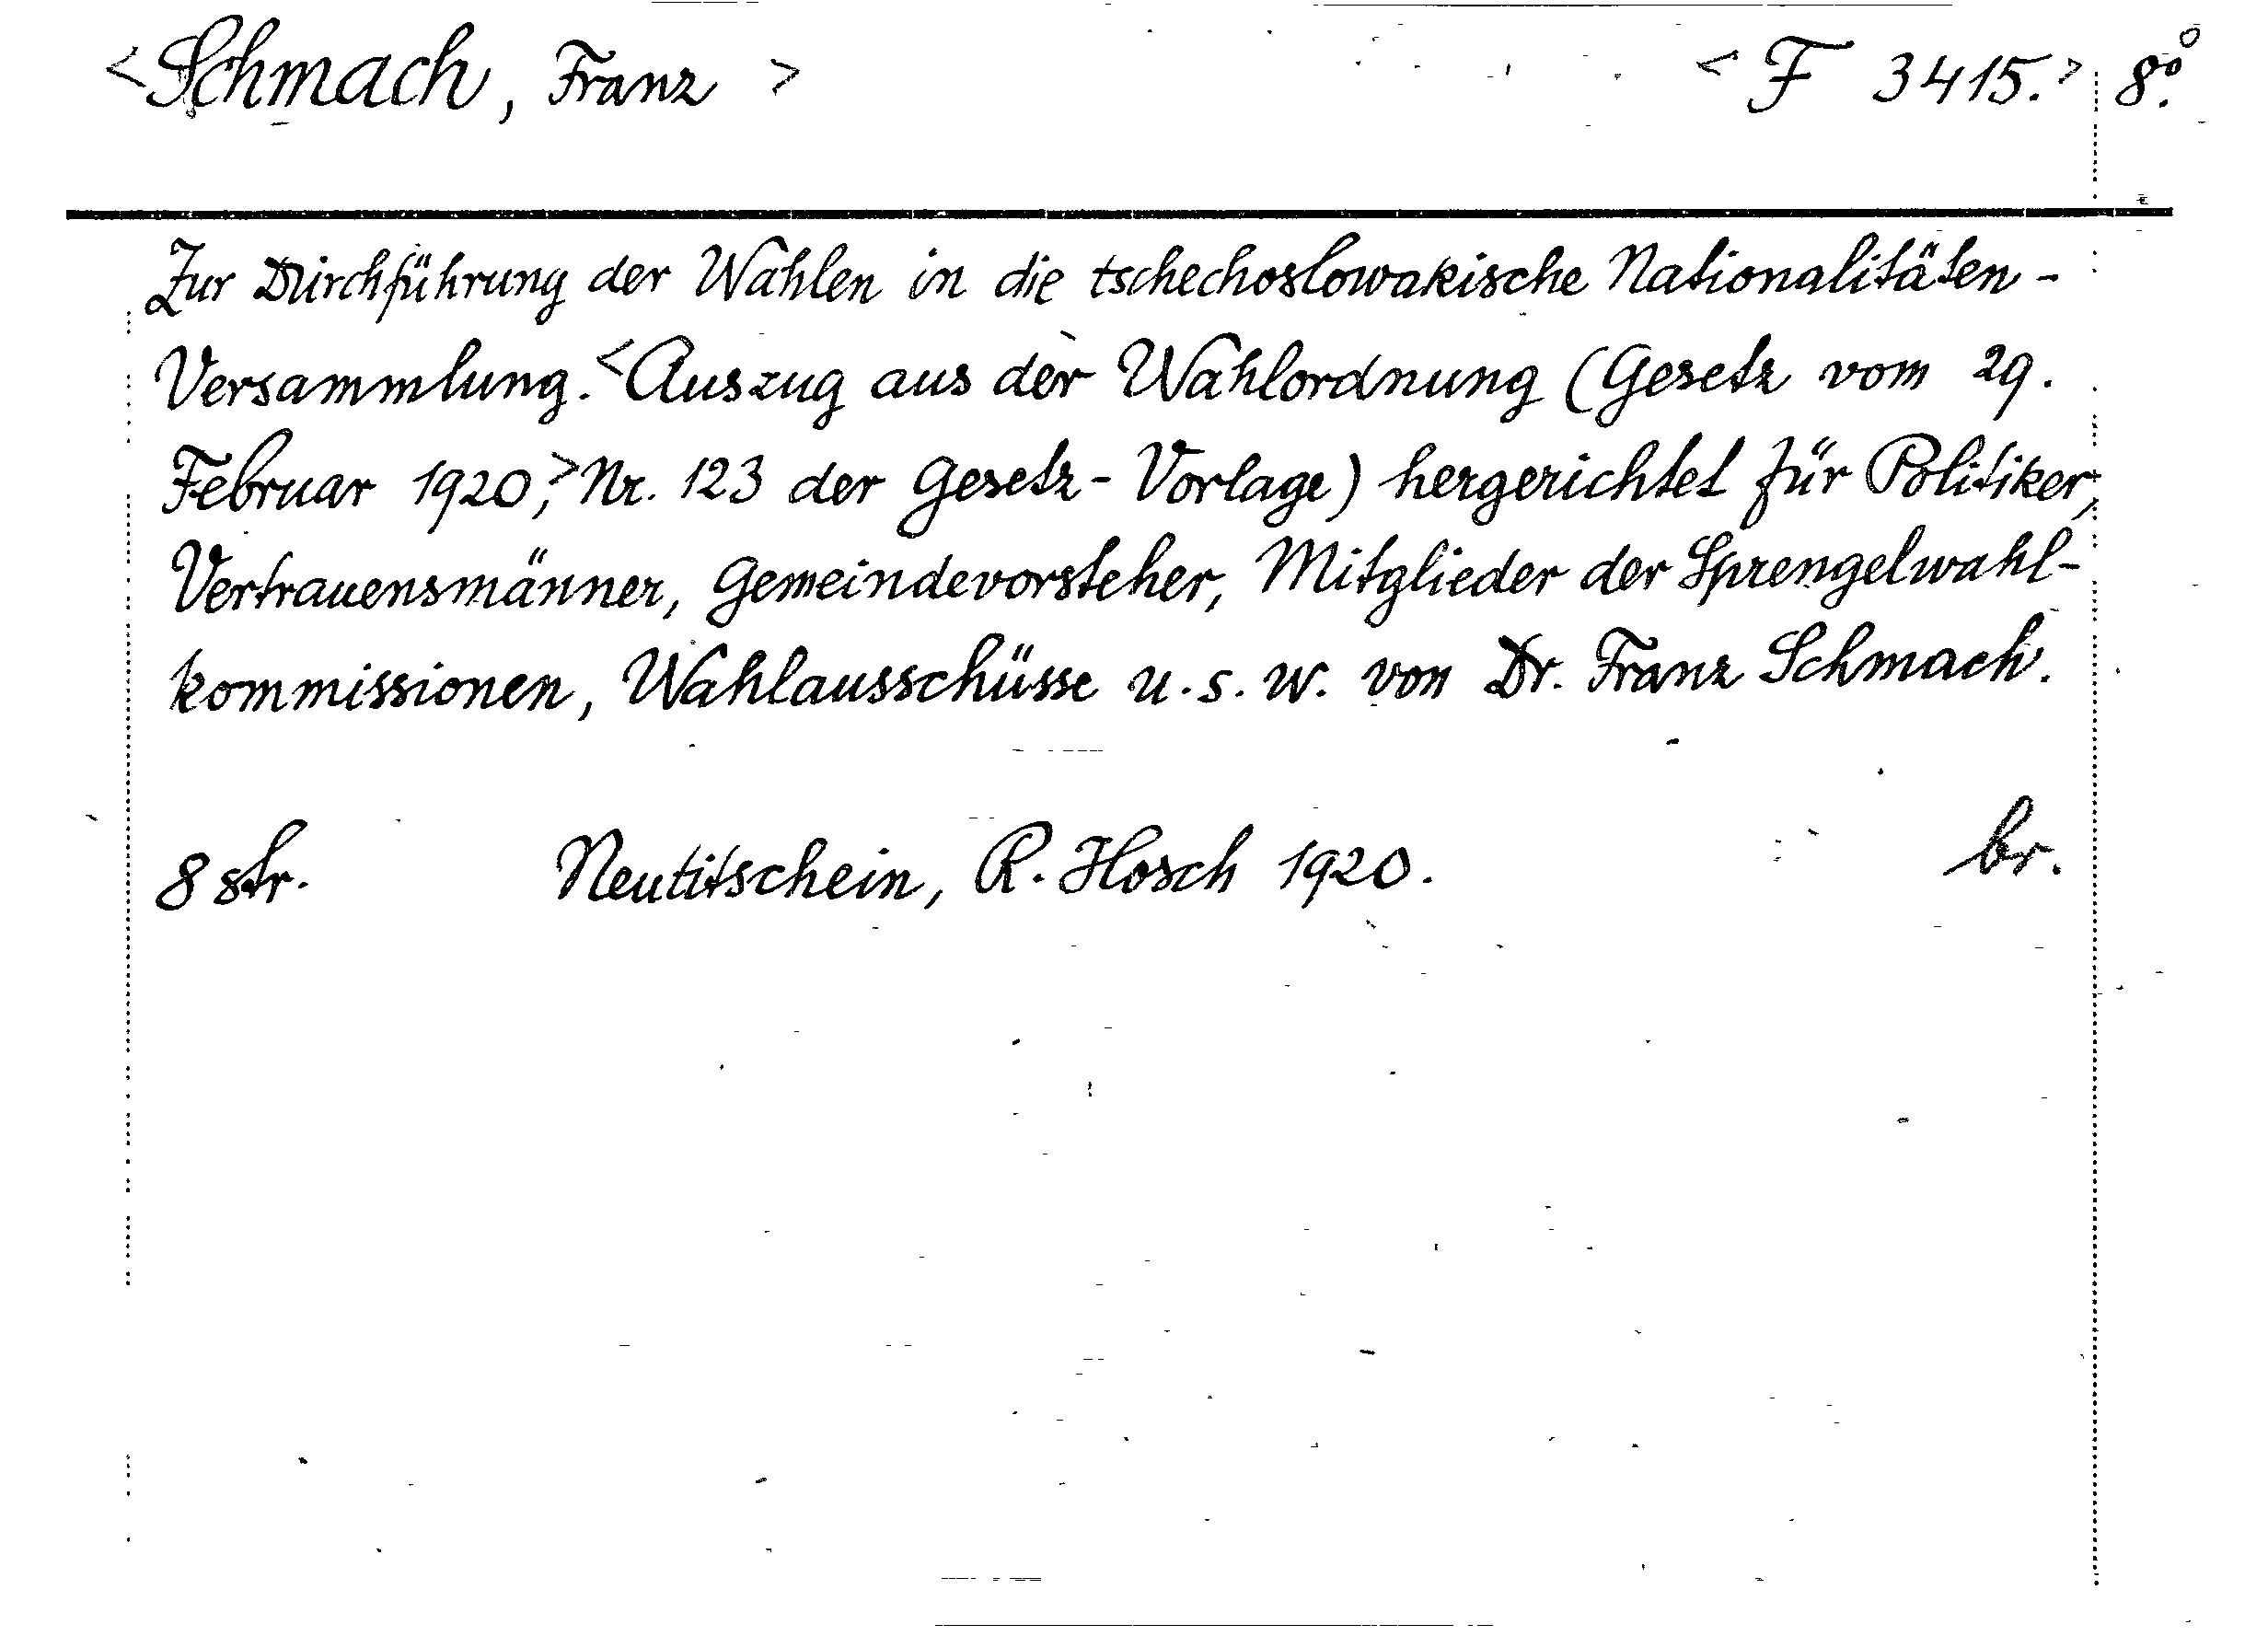 <Schmach, Franz > <F 3415.> 8.°
Zur Durchführung der Wahlen in die tschechoslowakische Nationalitäten-
Versammlung. <Auszug aus der Wahlordnung (Gesetz vom 29.
Februar 1920,> Nr. 123 der Gesetz-Vorlage) hergerichtet für Politiker,
Vertrauensmänner, Gemeindevorsteher, Mitglieder der Sprengelwahl-
kommissionen, Wahlausschüsse u. s. w. von Dr. Franz Schmach.
8 str. Neutitschein, R. Hosch 1920. br.